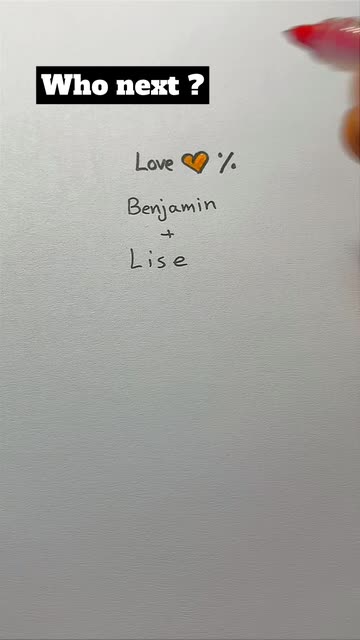 Who next ?
Love 🧡 %
Benjamin
+
Lise